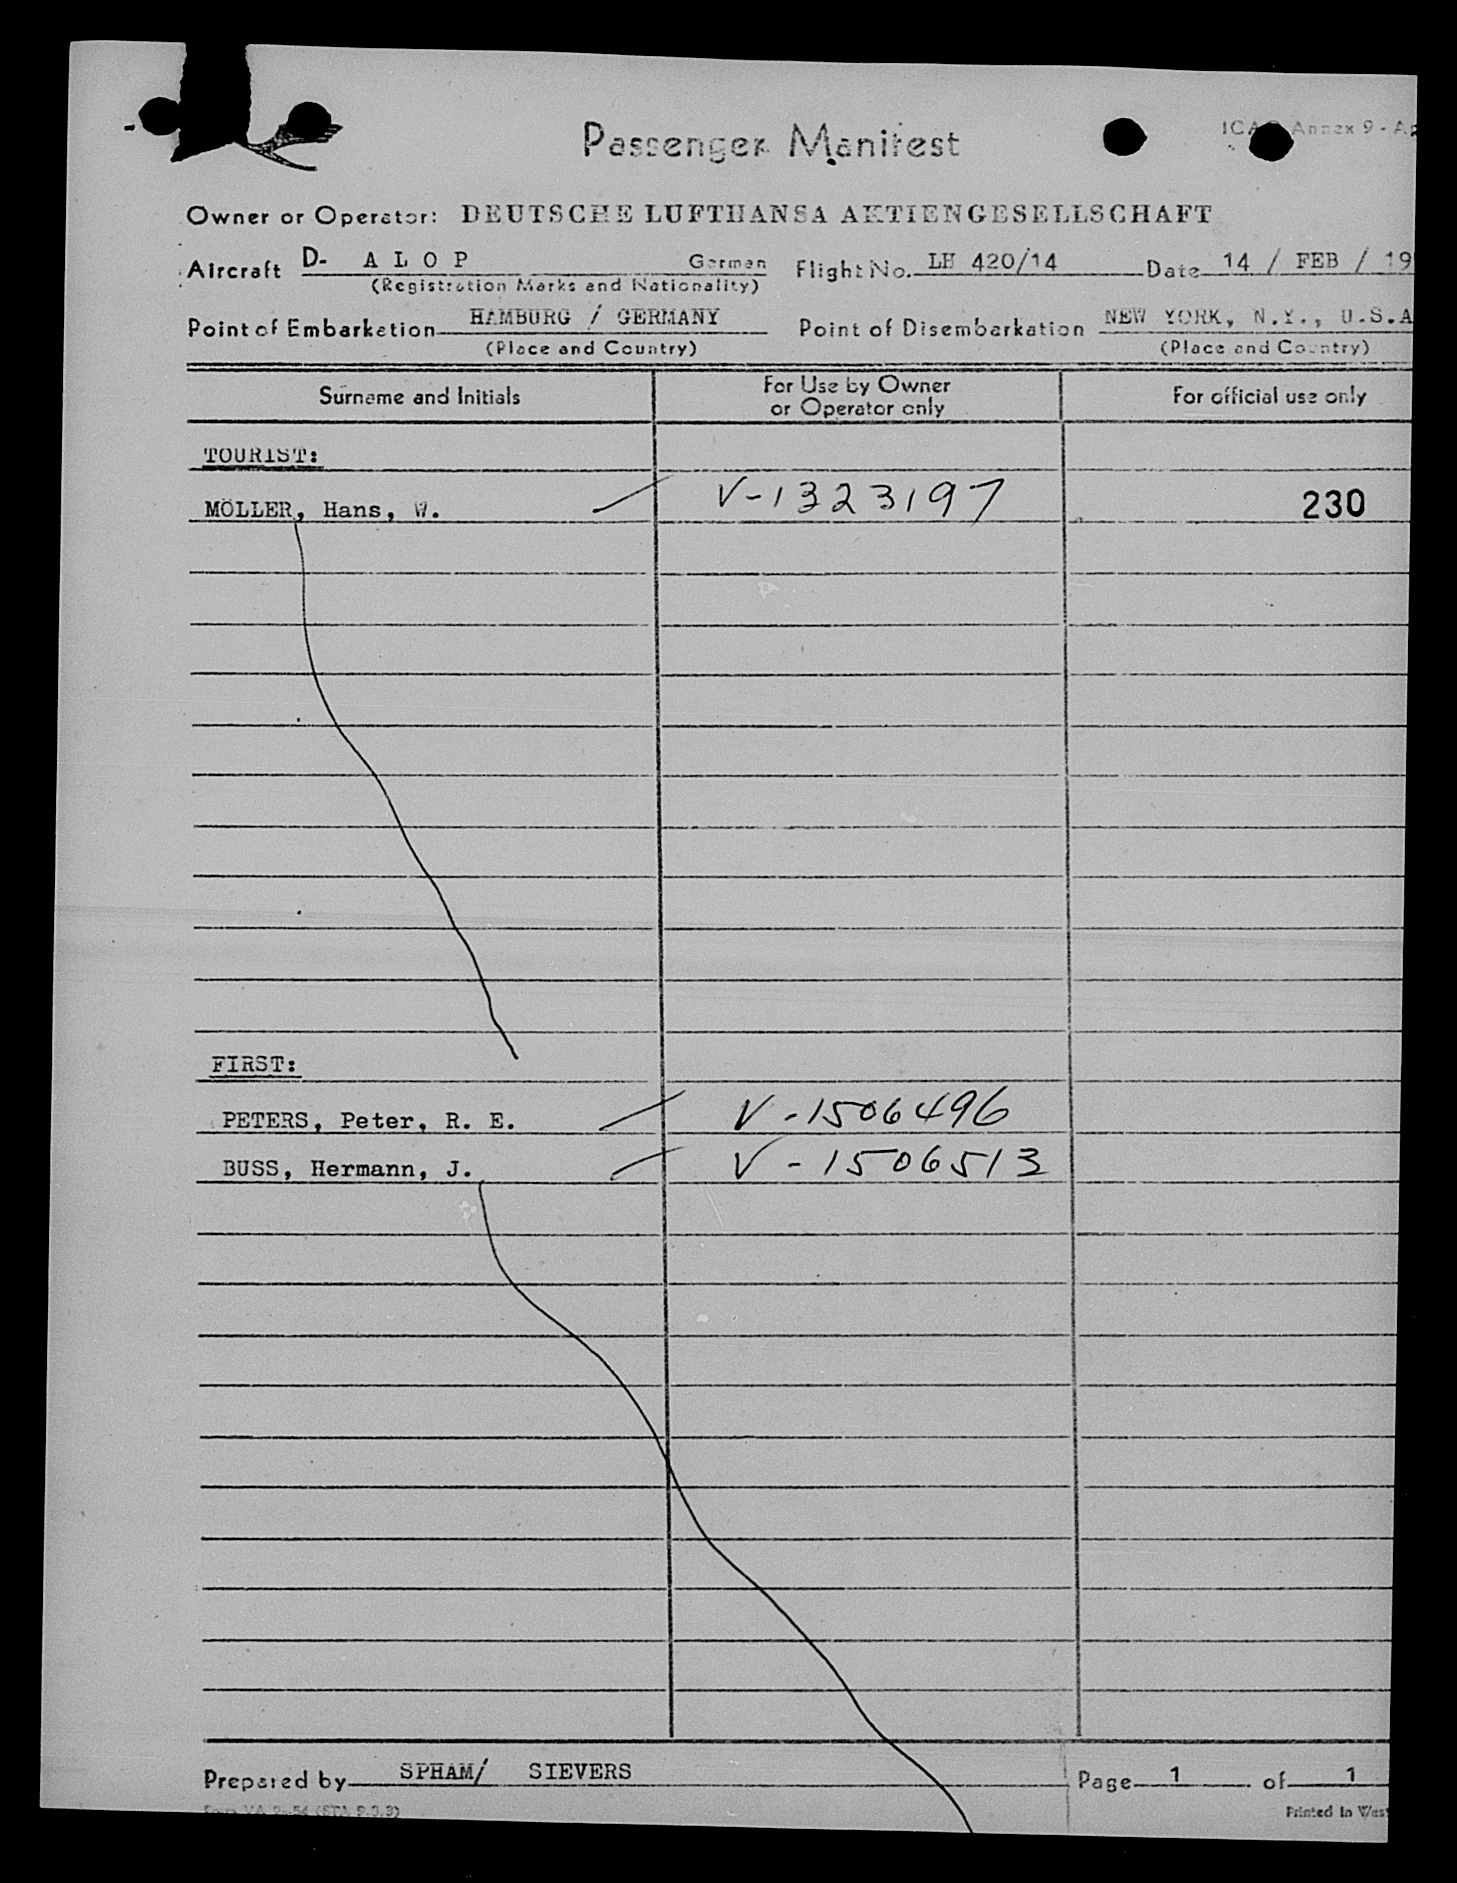 Passenger Manifest
ICAO Annex 9 - Ap
Owner or Operator: DEUTSCHE LUFTHANSA AKTIENGESELLSCHAFT
Aircraft D- A L O P German Flight No. LH 420/14 Date 14 / FEB / 19
(Registration Marks and Nationality)
Point of Embarkation HAMBURG / GERMANY Point of Disembarkation NEW YORK, N.Y., U.S.A
(Place and Country) (Place and Country)
Surname and Initials For Use by Owner or Operator only For official use only
TOURIST:
MÖLLER, Hans, W. V-1323197 230
FIRST:
PETERS, Peter, R. E. V-1506496
BUSS, Hermann, J. V-1506513
Prepared by SPHAM/ SIEVERS Page 1 of 1
Printed in West